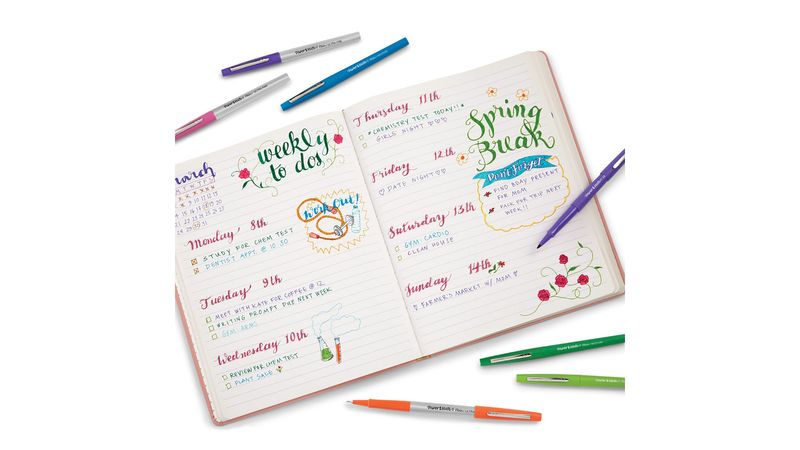 weekly
to dos
arch
Monday, 8th
STUDY FOR CHEM TEST
DENTIST APPT. @ 10:30
Work Out!
Tuesday 9th
MEET WITH KATE FOR COFFEE @ 12
WRITING PROMPT DUE NEXT WEEK
GYM: ARMS
Wednesday 10th
REVIEW FOR CHEM TEST
PLANT SALE
Thursday 11th
*CHEMISTRY TEST TODAY!!*
GIRLS NIGHT ♡♡♡
Friday 12th
♡ DATE NIGHT ♡♡
Saturday 13th
GYM: CARDIO
CLEAN HOUSE
Sunday 14th
♡ FARMERS MARKET W/ MOM ♡
Spring
Break
Don't Forget
FIND BDAY PRESENT
FOR MOM
PACK FOR TRIP NEXT
WEEK!!
Paper Mate
Paper Mate
Paper Mate
Paper Mate
Paper Mate